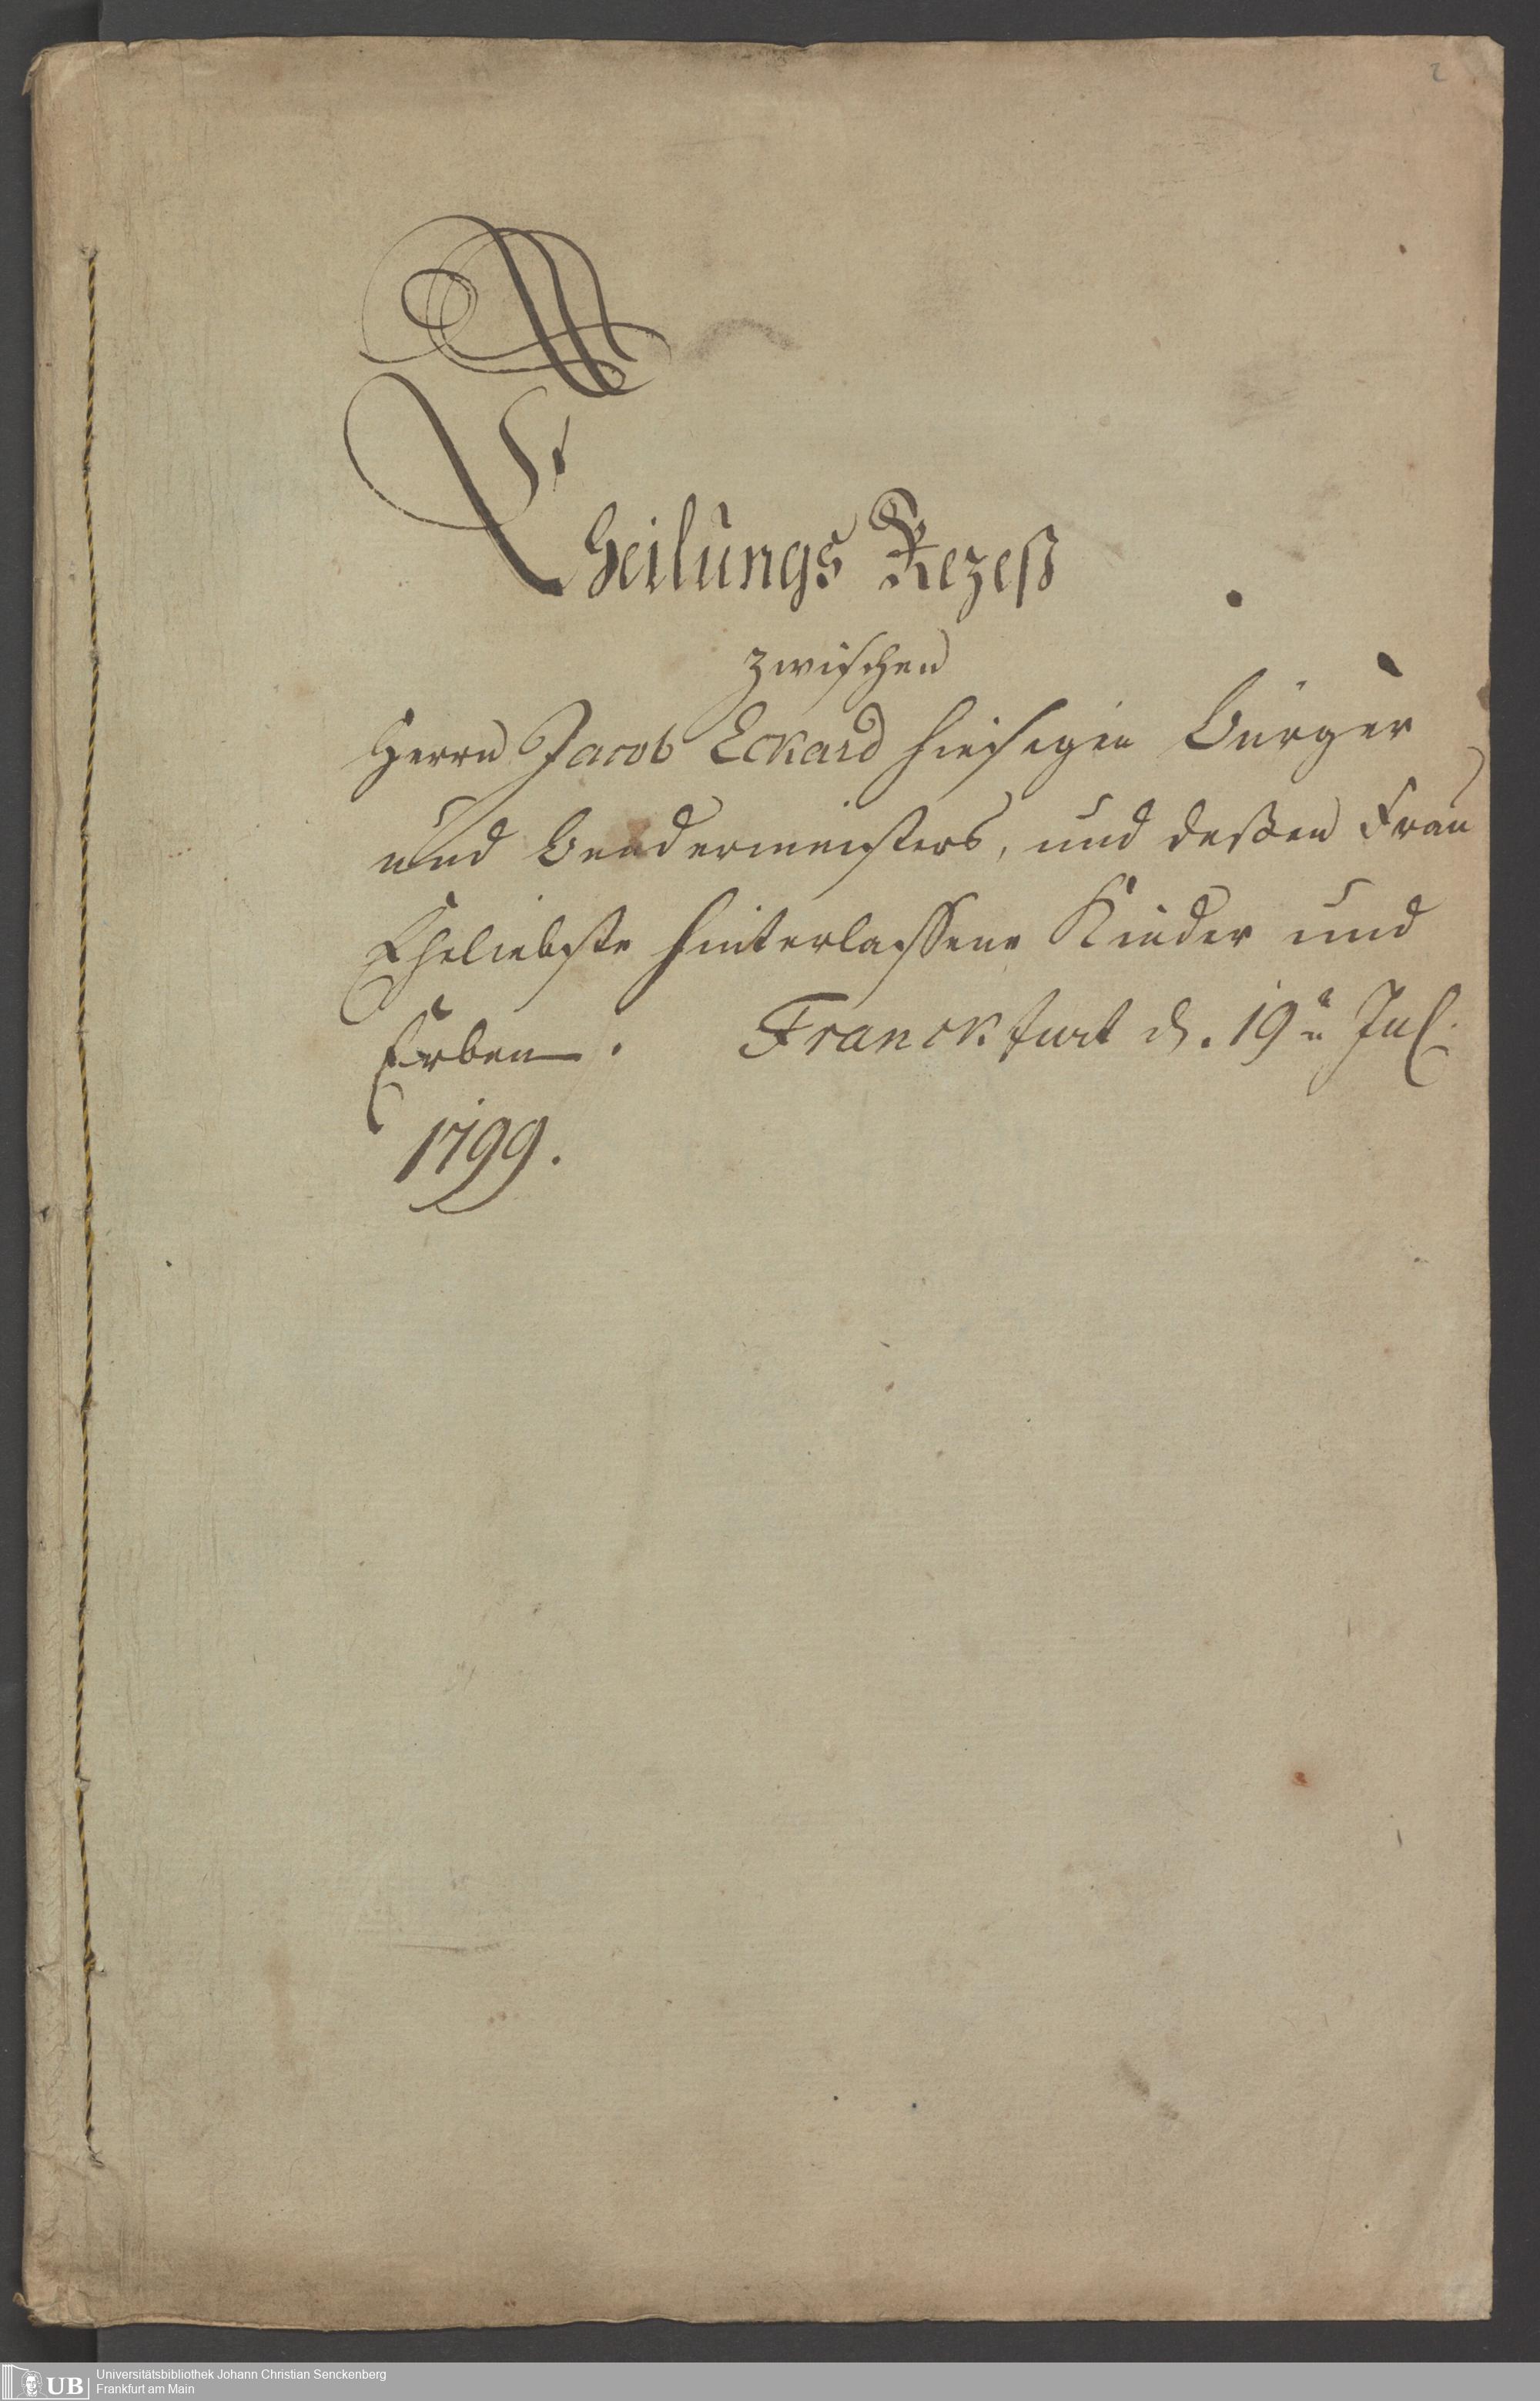 2
Theilungs Rezeß
zwischen
Herrn Jacob Eckard hiesigen Bürger
und Bendermeisters, und deßen Frau
Eheliebste hinterlassene Kinder und
Erben. Franckfurt d. 19n Jul.
1799.
UB
Universitätsbibliothek Johann Christian Senckenberg
Frankfurt am Main